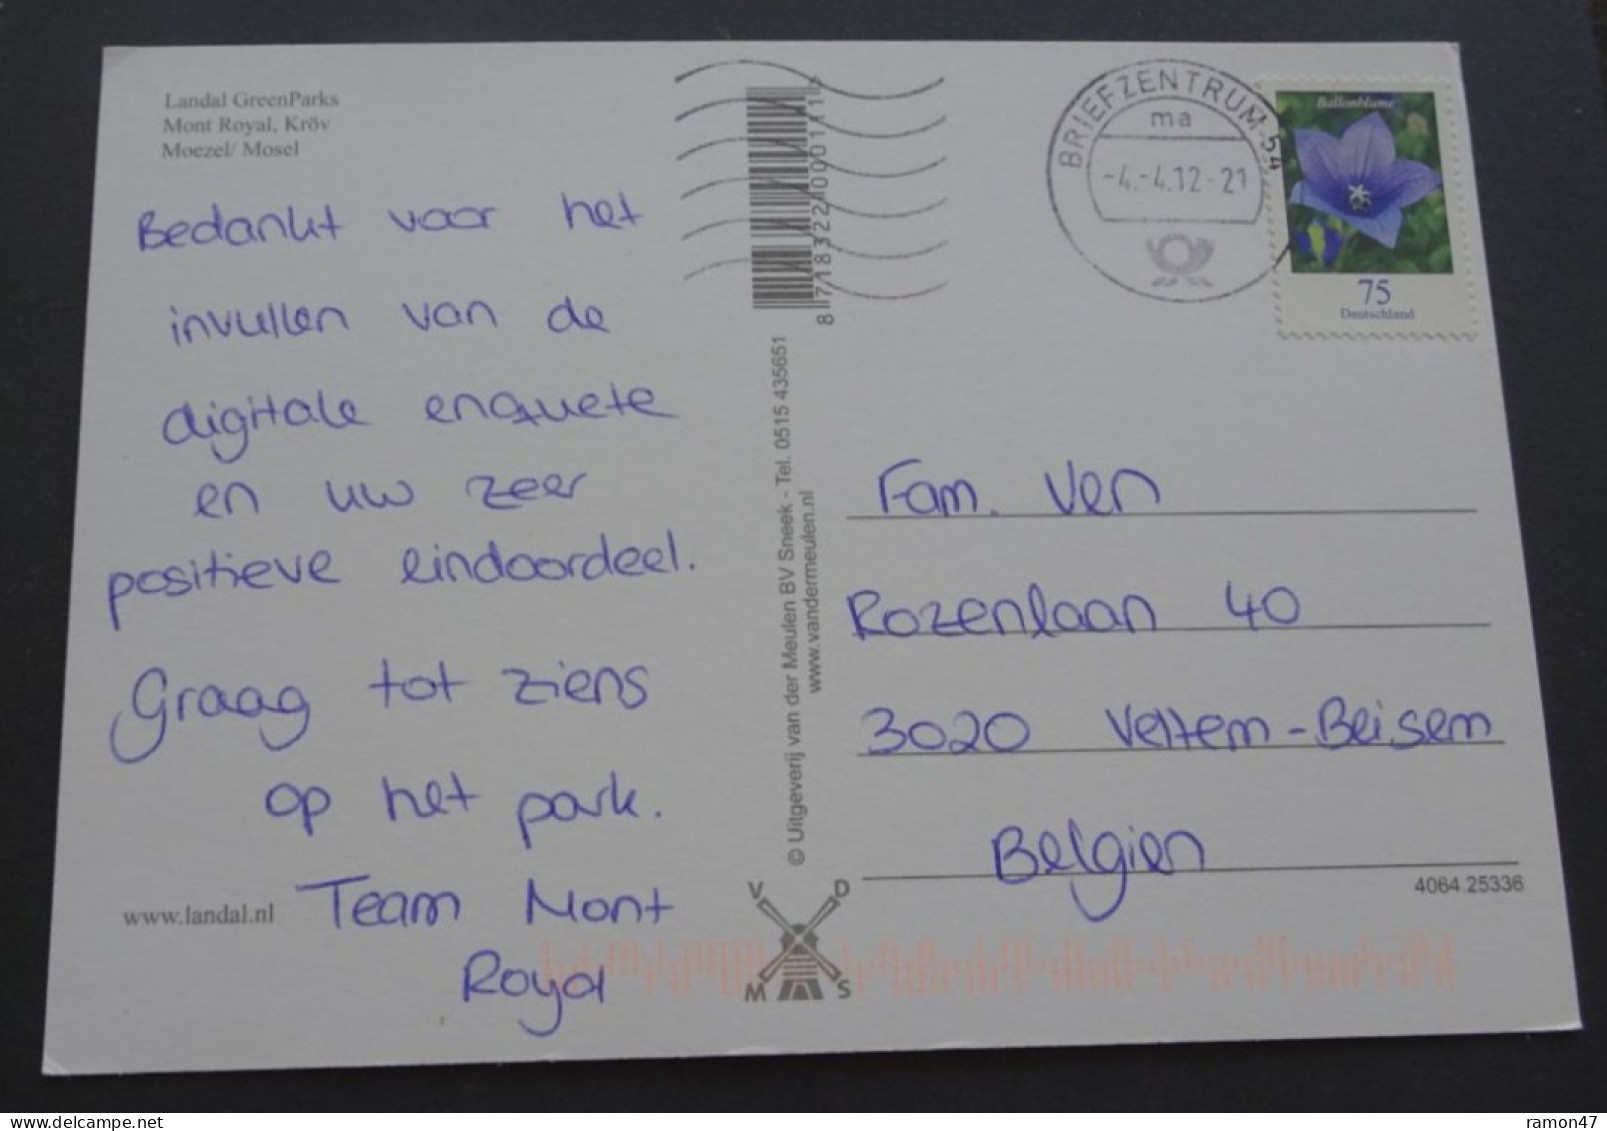 Landal GreenParks
Mont Royal, Kröv
Moezel/ Mosel
Bedankt voor het
invullen van de
digitale enquete
en uw zeer
positieve eindoordeel.
Graag tot ziens
op het park.
Team Mont
Royal
www.landal.nl
8 718322 000111 >
© Uitgeverij van der Meulen BV Sneek - Tel. 0515 435651
www.vandermeulen.nl
V D
M S
BRIEFZENTRUM 54
ma
-4.-4.12-21
Ballonblume
75
Deutschland
Fam. Ven
Rozenlaan 40
3020 Veltem-Beisem
Belgien
4064.25336
ramon47